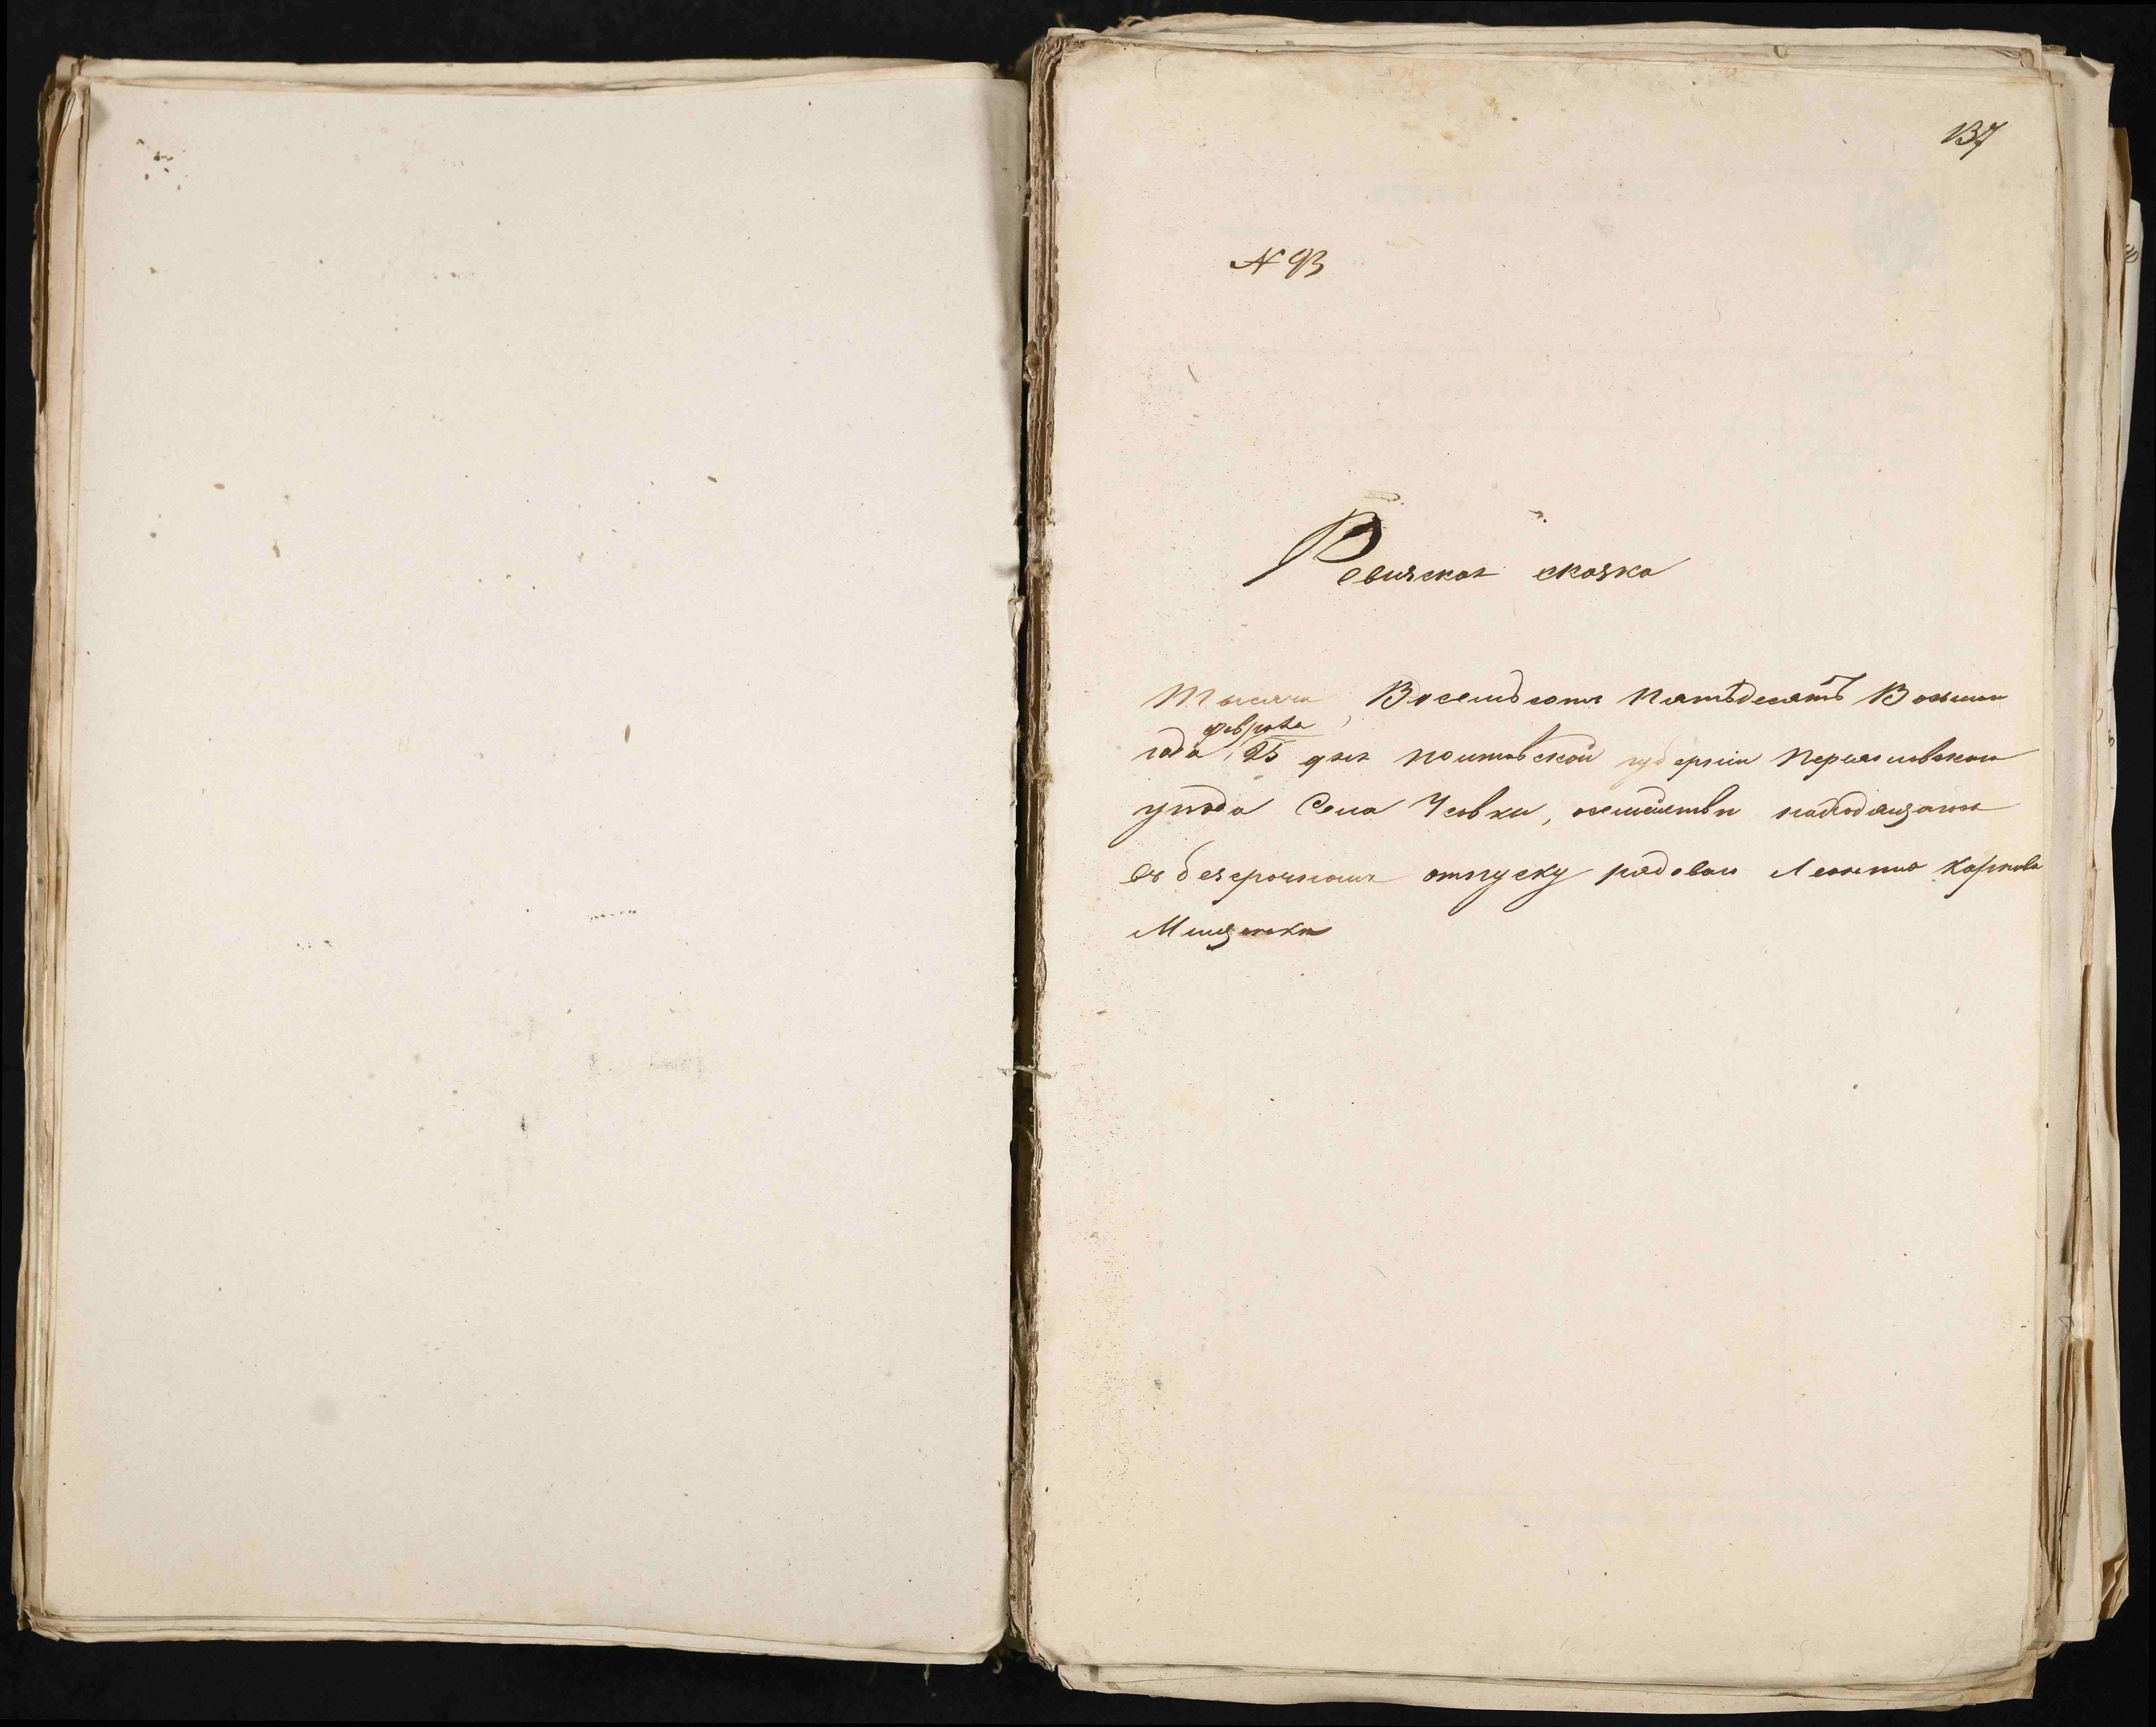 137
№ 93
Ревизская сказка
Тысяча Восемьсотъ Пятьдесятъ Восьмаго
февраля
года, 25 дня Полтавской губерніи Переяславскаго
уѣзда Села Усовки, осемействѣ находящагося
въ безсрочномъ отпуску рядоваго Леонтия Карпова
Мищенки